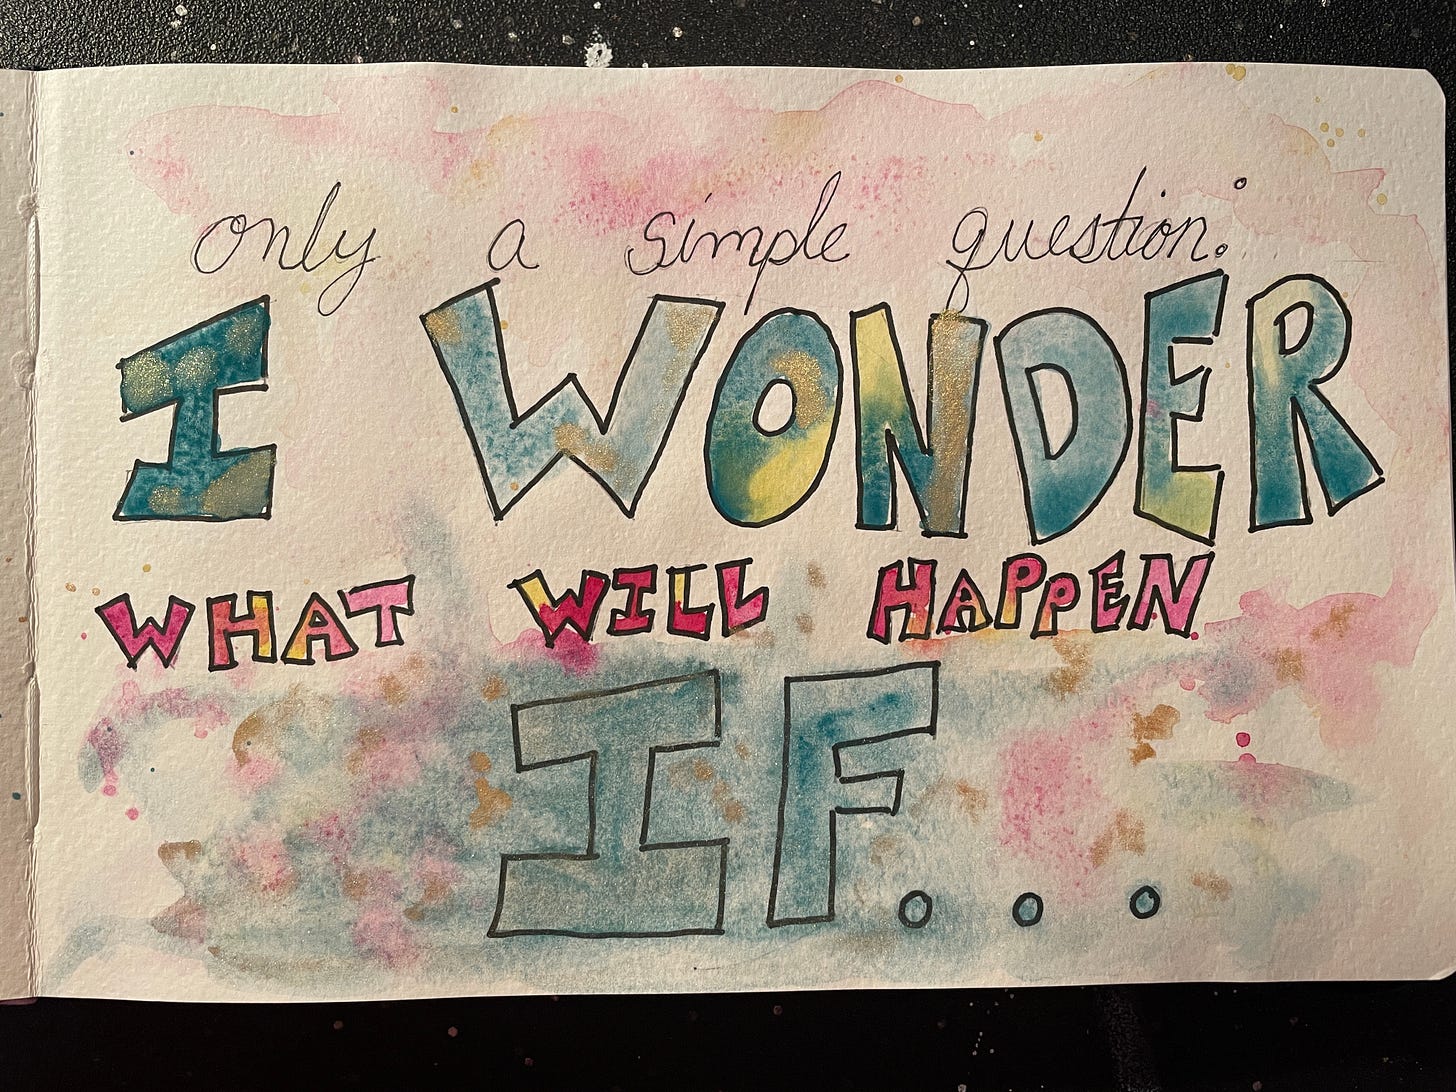 only a simple question:
I WONDER
WHAT WILL HAPPEN
IF...